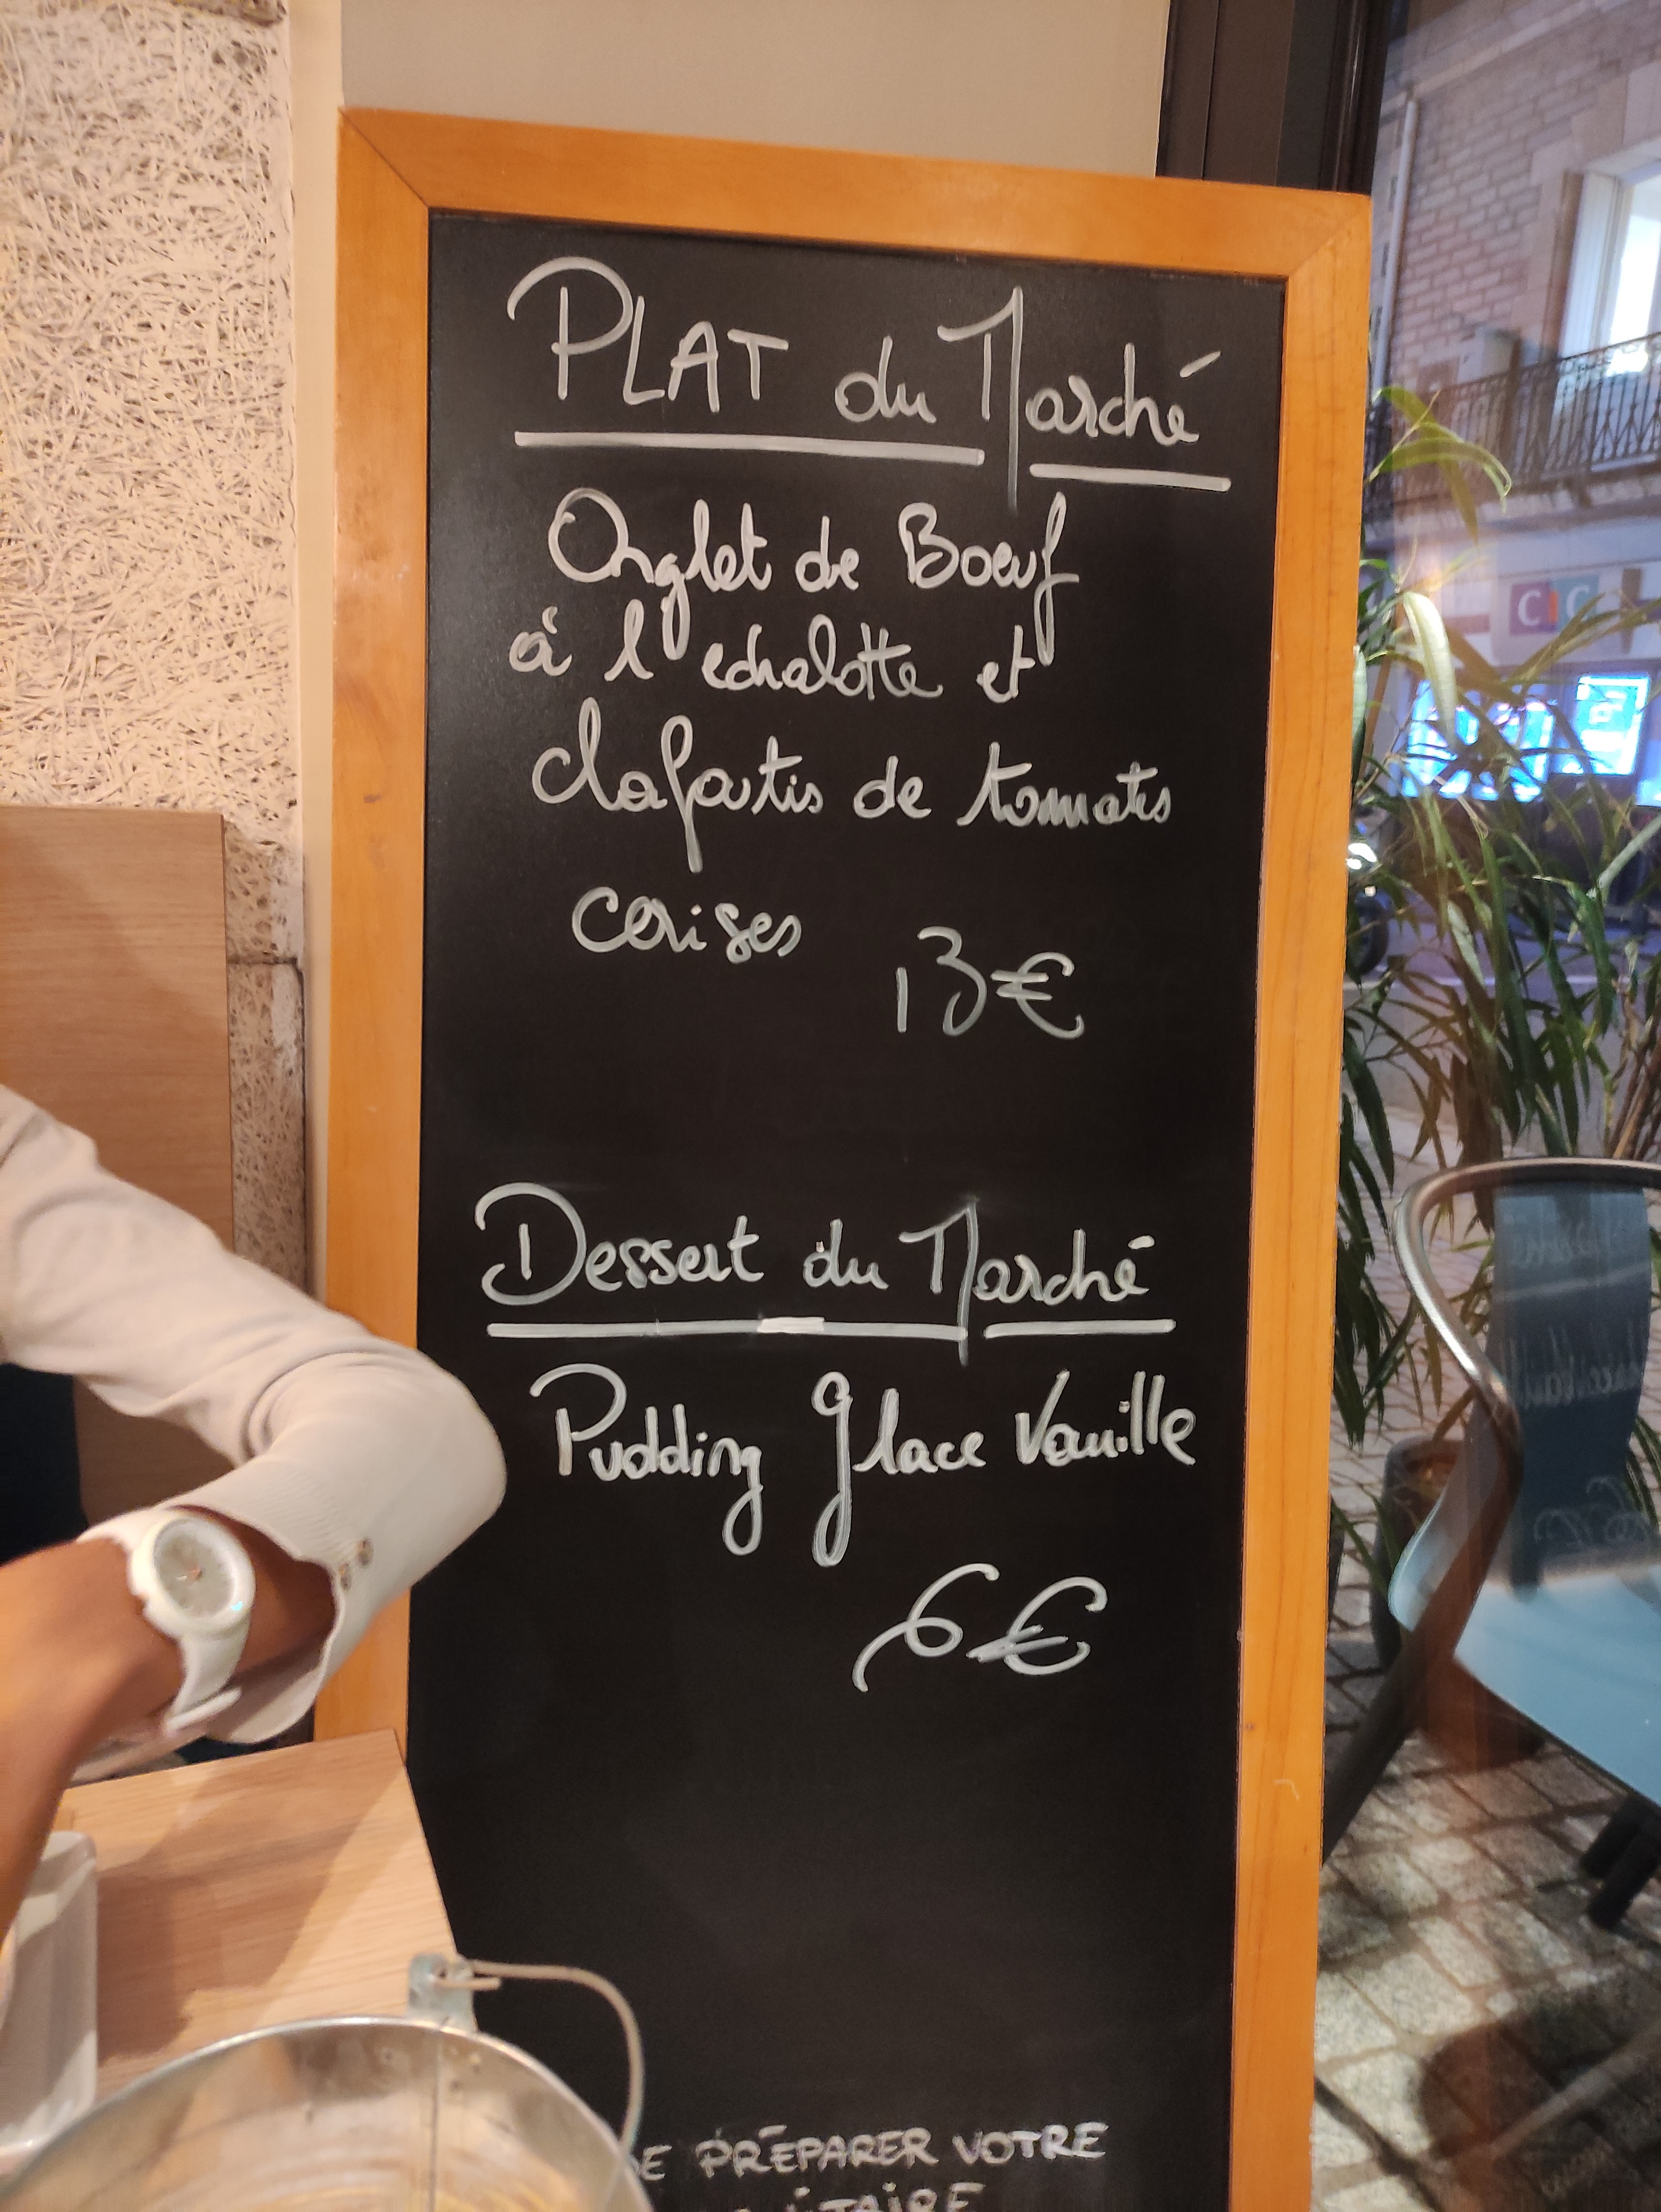 PLAT du Marché
Onglet de Boeuf
à l'echalotte et
clafoutis de tomates
cerises
13€
Dessert du Marché
Pudding glace Vanille
6€
DE PRÉPARER VOTRE
CIC